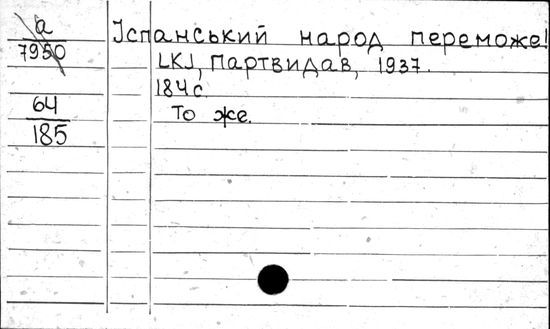 a
7950
64
185
Іспанський народ переможе!
LKJ, Партвидав, 1937.
184 с.
То же.